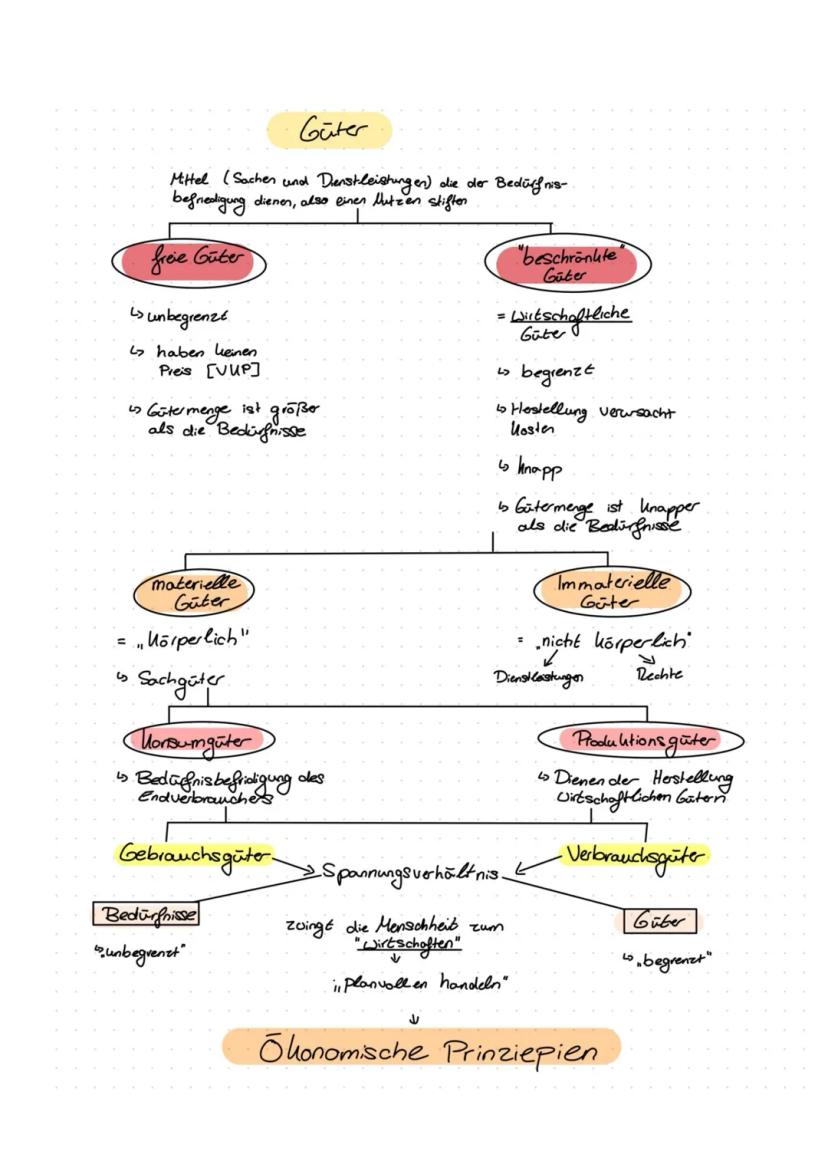 Güter
Mittel (Sachen und Dienstleistungen) die der Bedürfnis-
befriedigung dienen, also einen Nutzen stiften
freie Güter
↳ unbegrenzt
↳ haben keinen
Preis [VUP]
↳ Gütermenge ist größer
als die Bedürfnisse
"beschränkte"
Güter
= Wirtschaftliche
Güter
↳ begrenzt
↳ Herstellung verursacht
Kosten
↳ knapp
↳ Gütermenge ist knapper
als die Bedürfnisse
materielle
Güter
= „körperlich"
↳ Sachgüter
Immaterielle
Güter
= „nicht körperlich"
Dienstleistungen
Rechte
Konsumgüter
↳ Bedürfnisbefridigung des
Endverbrauchers
Produktionsgüter
↳ Dienen der Herstellung
Wirtschaftlichen Gütern
Gebrauchsgüter
Spannungsverhältnis
Verbrauchsgüter
Bedürfnisse
↳ „unbegrenzt"
zwingt die Menschheit zum
"Wirtschaften"
↓
„planvollen handeln"
Güter
↳ „begrenzt"
↓
Ökonomische Prinziepien